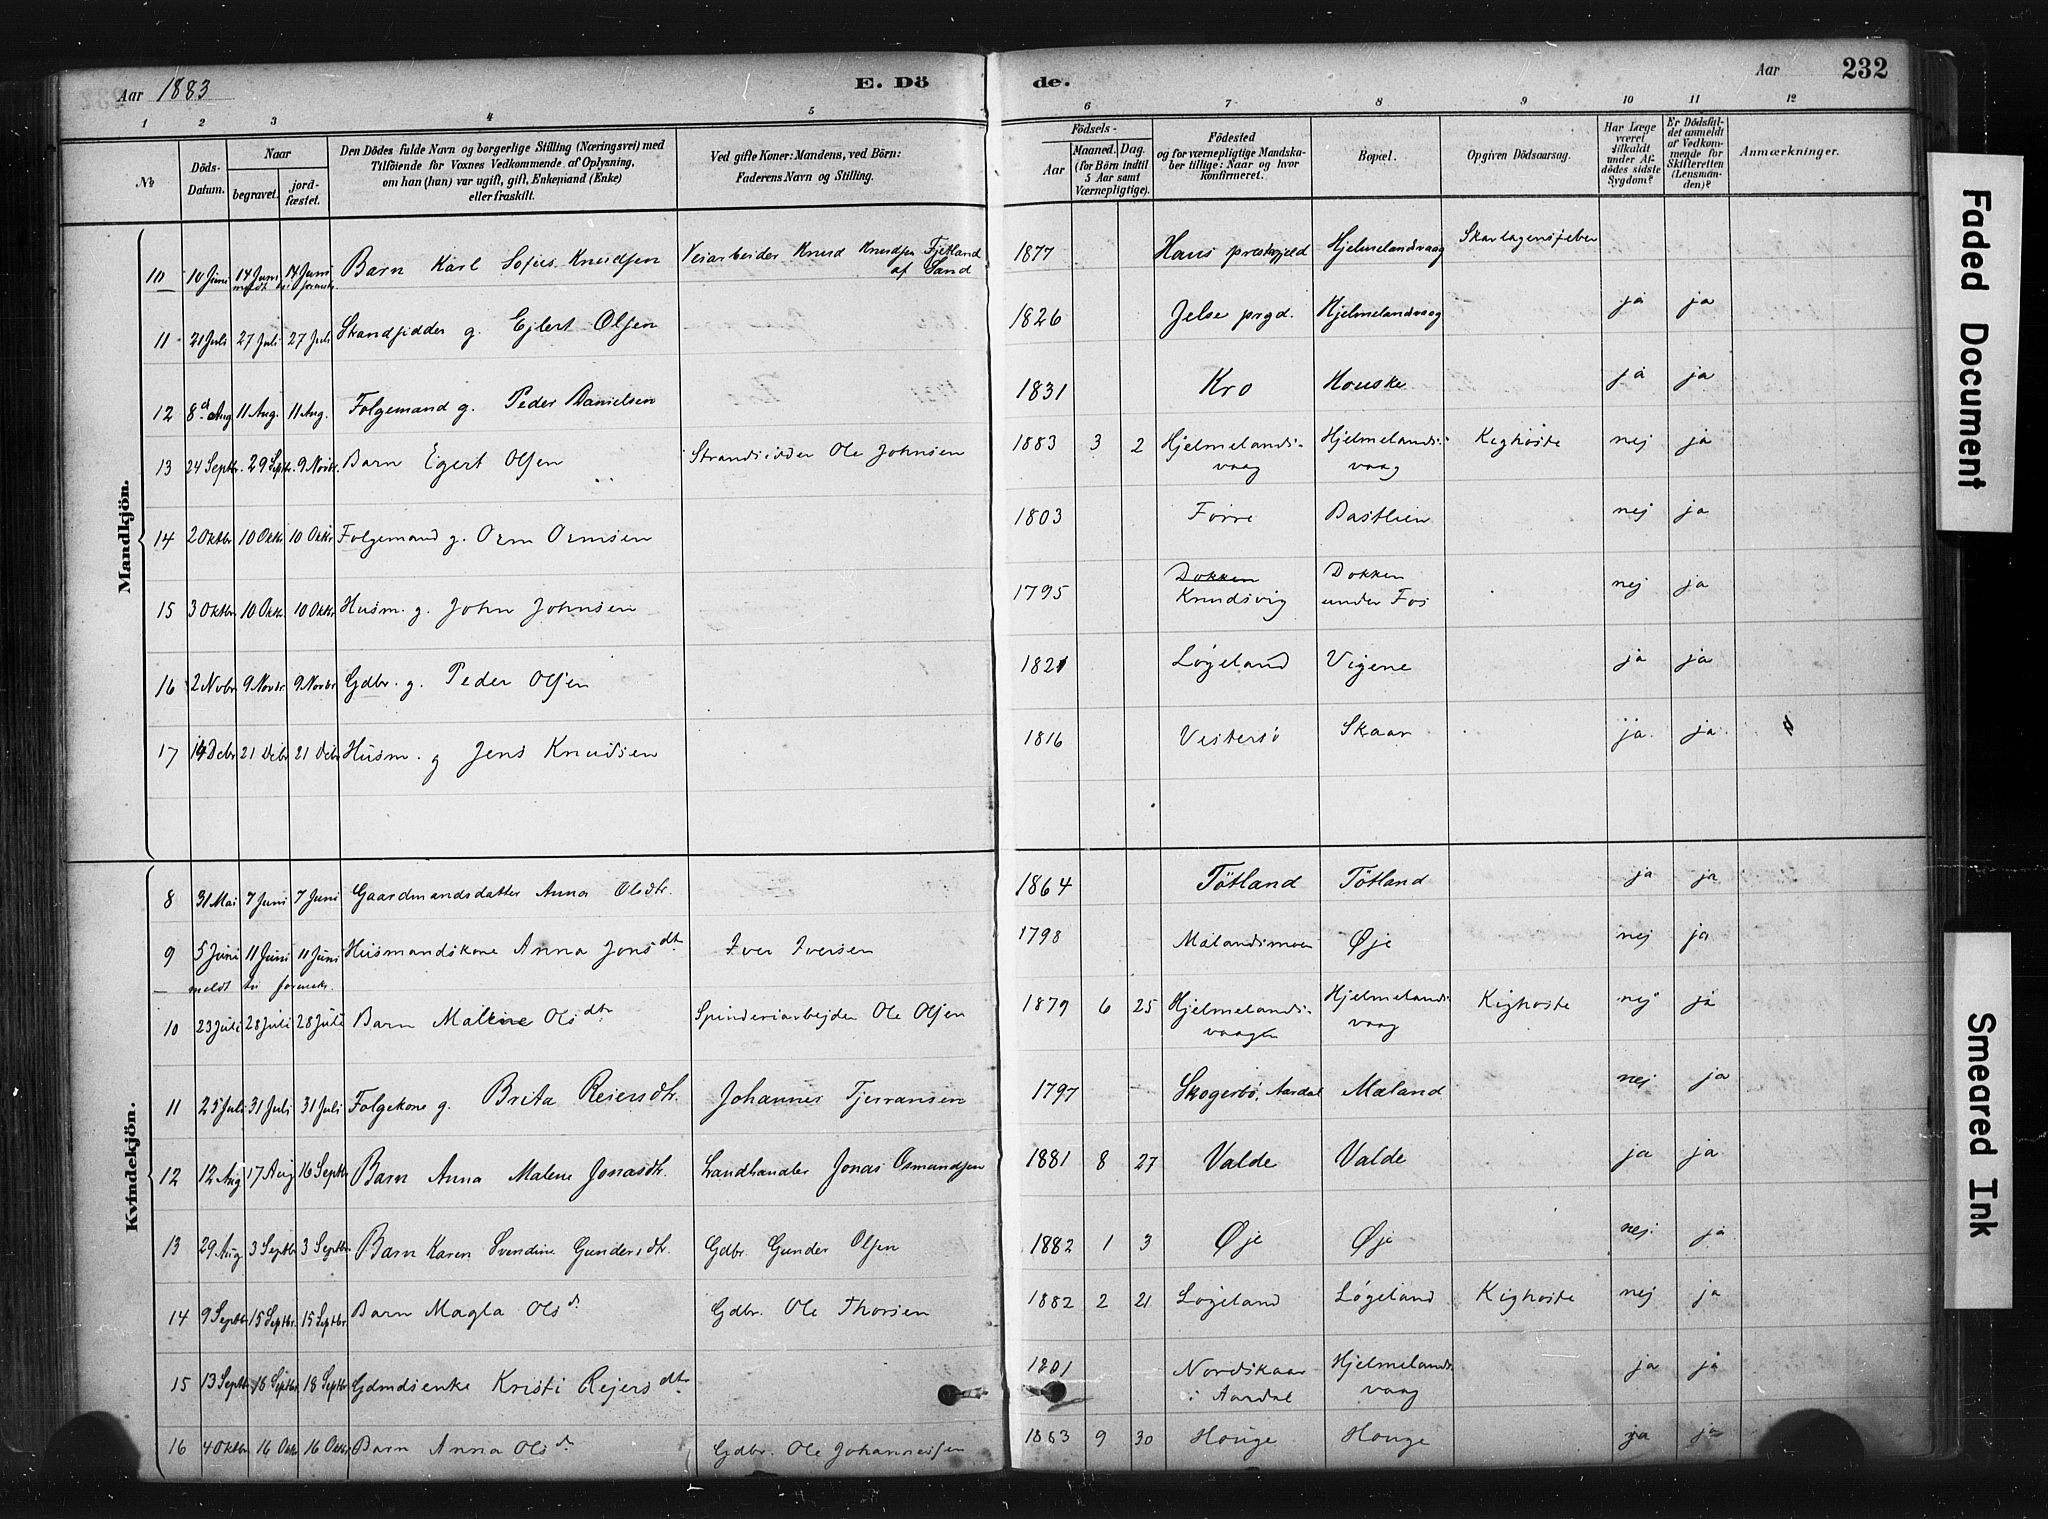 Aar 1883 E. Dö de. Aar 232
1 2 3 4 5 6 7 8 9 10 11 12
№
Döds-Datum.
Naar
begravet. jordfæstet.
Den Dödes fulde Navn og borgerlige Stilling (Næringsvei) med
Tilföiende for Voxnes Vedkommende af Oplysning,
om han (hun) var ugift, gift, Enkemand (Enke)
eller fraskilt.
Ved gifte Koner: Mandens, ved Börn:
Faderens Navn og Stilling.
Födsels-
Aar Maaned. Dag.
(for Börn indtil
5 Aar samt
Værnepligtige).
Födested
og for værnepligtige Mandska-
ber tillige: Naar og hvor
Konfirmeret.
Bopæl.
Opgiven Dödsaarsag.
Har Læge
været
tilkaldt
under Af-
dödes sidste
Sygdom?
Er Dödsfal-
det anmeldt
af Vedkom-
mende for
Skifteretten
(Lensman-
den)?
Anmærkninger.
Mandkjön.
10 10 Juni 14 Juni 14 Juni Barn Karl Sofus Knudsen Veiarbeider Knud Knudsen Fjetland af Sand 1877 Hans præstegjeld Hjelmelandsvaag Skarlagensfeber
11 21 Juli 27 Juli 27 Juli Strandsidder g. Ejlert Olsen 1826 Jelse prgd. Hjelmelandsvaag ja ja
12 8d Aug 11 Aug. 11 Aug. Folgemand g. Peder Danielsen 1831 Kro Houske ja ja
13 24 Septbr. 29 Septbr. 9 Novbr. Barn Egert Olsen Strandsidder Ole Johnsen 1883 3 2 Hjelmelandsvaag Hjelmelandsvaag Kighoste nej ja
14 2 Oktbr 10 Oktbr 10 Oktbr Folgemand g. Orm Ormsen 1803 Førre Bastlien nej ja
15 3 Oktbr 10 Oktbr. 10 Oktbr Husm. g. John Johnsen 1795 Dokken Knudsvig Dokken under Fos nej ja
16 2 Novbr 9 Novbr 9 Novbr Gdbr. g. Peder Olsen 1821 Løgeland Vigene ja ja
17 14 Debr 21 Debr 21 Debr Husm. g Jens Knudsen 1816 Vestersø Skaar ja. ja.
Kvindekjön.
8 31 Mai 7 Juni 7 Juni Gaardmandsdatter Anna Olsdtr. 1864 Tøtland Tøtland ja ja
9 5 Juni 11 Juni 11 Juni Husmandskone Anna Jonsdtr Iver Iversen 1798 Mælandsmoen Øje nej ja
meldt til formdr.
10 23 Juli 28 Juli 28 Juli Barn Maline Olsdtr Spinderiarbejder Ole Olsen 1879 6 25 Hjelmelandsvaagen Hjelmelandsvaag Kighoste nej ja
11 25 Juli 31 Juli 31 Juli Folgekone g. Brita Reiersdtr. Johannes Tjerransen 1797 Skogerbø, Aardal Mæland nej ja
12 12 Aug 17 Aug 16 Septbr Barn Anna Malene Jonasdtr. Landhandler Jonas Osmundsen 1881 8 27 Valde Valde ja ja
13 29 Aug 3 Septbr 3 Septbr Barn Karen Svendine Gundersdtr. Gdbr. Gunder Olsen 1882 1 3 Øje Øje nej. ja
14 9 Septbr 15 Septbr. 15 Septbr. Barn Magla Olsd. Gdbr. Ole Thorsen 1882 2 21 Løgeland Løgeland Kighoste nej ja
15 13 Septbr 18 Septbr 18 Septbr Gdmdsenke Kristi Rejersdtr 1801 Nordskaar i Aardal Hjelmelandsvaag ja ja
16 4 Oktbr 16 Oktbr 16 Oktbr Barn Anna Olsd. Gdbr. Ole Johannessen 1883 9 30 Houge Houge ja ja
Faded Document
Smeared Ink